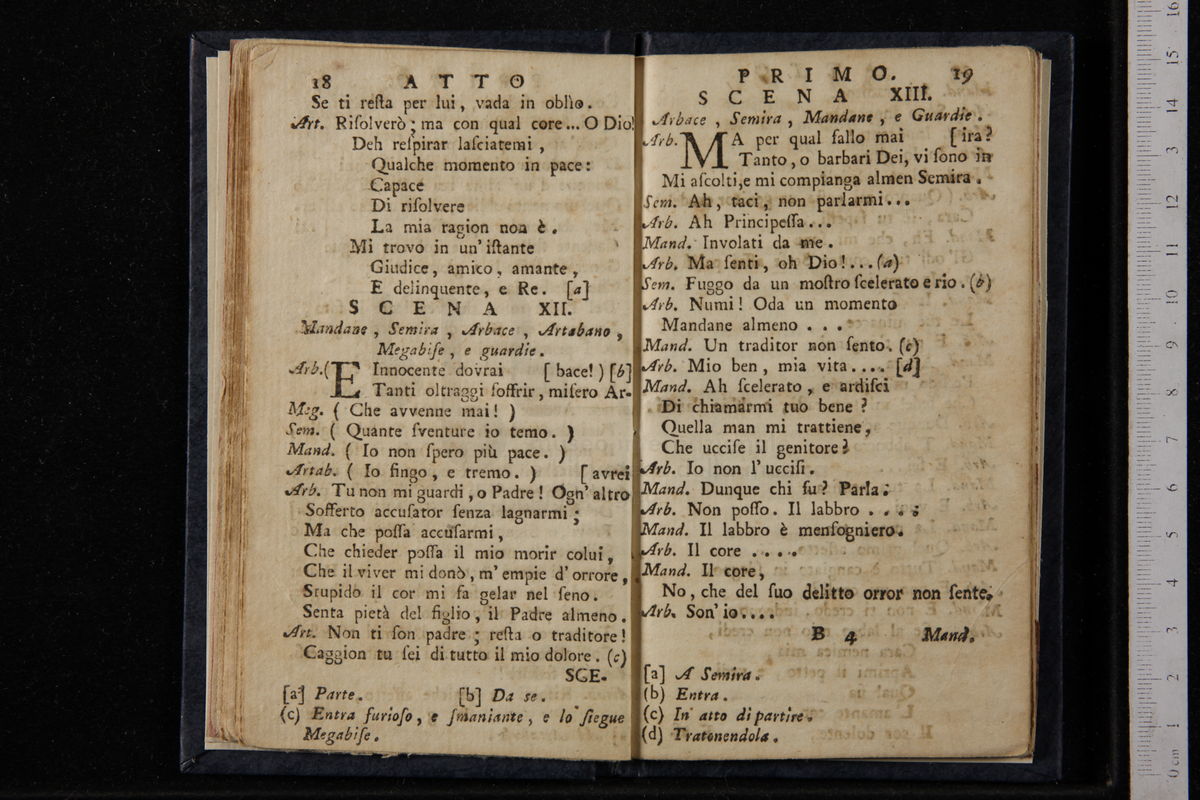 18 ATTO
Se ti reſta per lui, vada in oblìo.
Art. Riſolverò; ma con qual core... O Dio!
Deh reſpirar laſciatemi,
Qualche momento in pace:
Capace
Di riſolvere
La mia ragion non è.
Mi trovo in un' iſtante
Giudice, amico, amante,
E delinquente, e Re. [a]
SCENA XII.
Mandane, Semira, Arbace, Artabano,
Megabiſe, e guardie.
Arb.( E Innocente dovrai [bace!) [b]
Tanti oltraggi ſoffrir, miſero Ar-
Meg. ( Che avvenne mai! )
Sem. ( Quante ſventure io temo. )
Mand. ( Io non ſpero più pace. )
Artab. ( Io fingo, e tremo. ) [avrei
Arb. Tu non mi guardi, o Padre! Ogn' altro
Sofferto accuſator ſenza lagnarmi;
Ma che poſſa accuſarmi,
Che chieder poſſa il mio morir colui,
Che il viver mi donò, m' empie d' orrore,
Stupido il cor mi fa gelar nel ſeno.
Senta pietà del figlio, il Padre almeno.
Art. Non ti ſon padre; reſta o traditore!
Caggion tu ſei di tutto il mio dolore. (c)
SCE-
[a] Parte. [b] Da se.
(c) Entra furioſo, e ſmaniante, e lo ſiegue
Megabiſe.
PRIMO. 19
SCENA XIII.
Arbace, Semira, Mandane, e Guardie.
Arb. MA per qual fallo mai [ira?
Tanto, o barbari Dei, vi ſono in
Mi aſcolti,e mi compianga almen Semira.
Sem. Ah, taci, non parlarmi...
Arb. Ah Principeſſa...
Mand. Involati da me.
Arb. Ma ſenti, oh Dio!...(a)
Sem. Fuggo da un moſtro ſcelerato e rio. (b)
Arb. Numi! Oda un momento
Mandane almeno ...
Mand. Un traditor non ſento. (c)
Arb. Mio ben, mia vita.... [d]
Mand. Ah ſcelerato, e ardiſci
Di chiamarmi tuo bene?
Quella man mi trattiene,
Che ucciſe il genitore?
Arb. Io non l' ucciſi.
Mand. Dunque chi fu? Parla.
Arb. Non poſſo. Il labbro ....
Mand. Il labbro è menſogniero.
Arb. Il core ....
Mand. Il core,
No, che del ſuo delitto orror non ſente.
Arb. Son' io....
B 4 Mand.
[a] A Semira.
(b) Entra.
(c) In atto di partire.
(d) Tratenendola.
0 cm 1 2 3 4 5 6 7 8 9 10 11 12 13 14 15 16